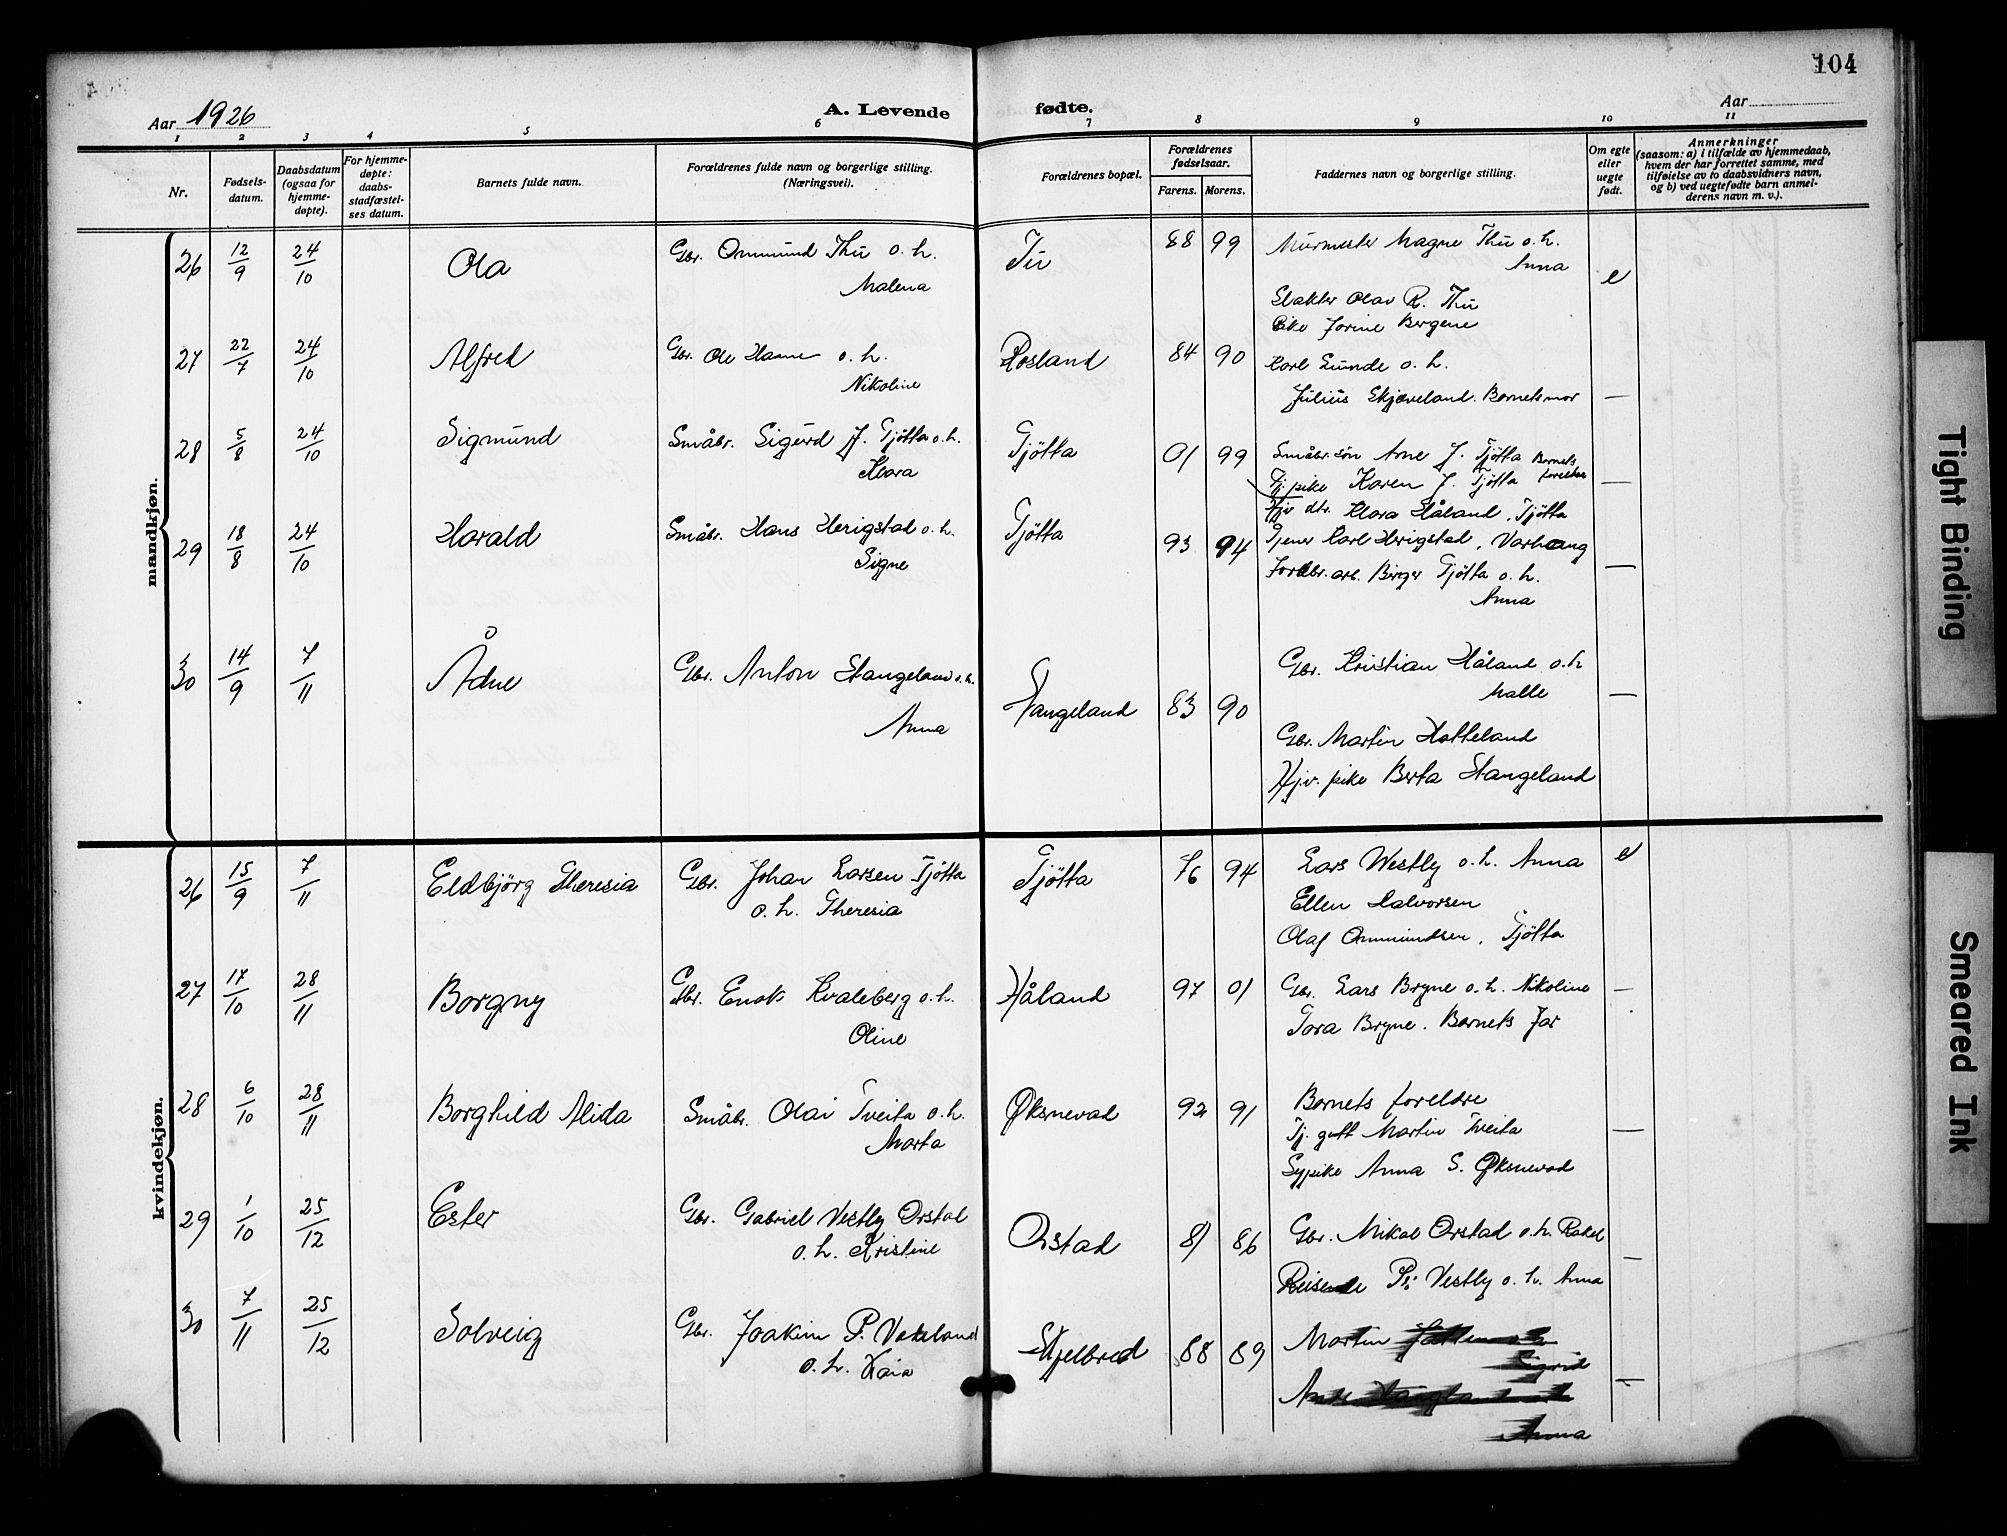 104
Aar 1926
A. Levende fødte.
Aar
1 2 3 4 5 6 7 8 9 10 11
Nr.
Fødsels-
datum.
Daabsdatum
(ogsaa for
hjemme-
døpte).
For hjemme-
døpte:
daabs-
stadfæstel-
ses datum.
Barnets fulde navn.
Forældrenes fulde navn og borgerlige stilling.
(Næringsvei).
Forældrenes bopæl.
Forældrenes
fødselsaar.
Farens. Morens.
Faddernes navn og borgerlige stilling.
Om egte
eller
uegte
født.
Anmerkninger
(saasom: a) i tilfælde av hjemmedaab,
hvem der har forrettet samme, med
tilføielse av to daabsvidners navn,
og b) ved uegtefødte barn anmel-
derens navn m. v.).
mandkjøn.
26 12/9 24/10 Ola Gbr. Ommund Thu o. h. Tu 88 99 Murmester Magne Thu o. h. e
Malena Anna
Slakter Olav R. Thu
Pike Jorine Bergene
27 22/7 24/10 Alfred Gbr. Ole o. h. Rosland 84 90 Karl Lunde o. h. —
Nikoline Julius Skjæveland. Barnets mor
28 5/8 24/10 Sigmund Småbr. Sigurd J. Tjøtta o. h. Tjøtta 01 99 Småbr. søn Arne J. Tjøtta Barnets —
Klara Tj. pike Karen J. Tjøtta foreldre
Hjv dtr. Klara Håland, Tjøtta
29 18/8 24/10 Harald Småbr. Hans Herigstad o. h. Tjøtta 93 94 Tjener Karl Herigstad, Varhaug —
Signe arb. Birger Tjøtta o. h.
Anna
30 14/9 7/11 Ådne Gbr. Anton Stangeland o. h. Stangeland 83 90 Gbr. Kristian Håland o. h —
Anna Malle
Gbr. Martin Hatteland
Hjv. pike Berta Stangeland
kvindekjøn.
26 15/9 7/11 Eldbjörg Theresia Gbr. Johan Larsen Tjøtta Tjøtta 76 94 Lars Westly o. h. Anna e
o. h. Theresia Ellen Halvorsen
Olaf Ommundsen, Tjøtta
27 17/10 28/11 Borgny Gbr. Enok Kvaleberg o. h. Håland 97 01 Gbr. Lars Bryne o. h. Nikoline —
Oline Tora Bryne. Barnets far
28 6/10 28/11 Borghild Alida Småbr. Olai Tveita o. h. Øksnevad 92 91 Barnets foreldre —
Marta Tj. gutt Martin Tveita
Sypike Anna S. Øksnevad
29 1/10 25/12 Ester Gbr. Gabriel Vestly Orstad Orstad 81 86 Gbr. Mikal Orstad o. h. Rakel —
o. h. Kristine Reisende Vestly o. h. Anna
30 7/11 25/12 Solveig Gbr. Joakim P. Vakeland Skjelbred 88 89 Martin —
o. h. Kaia Sigrid
Anna
Tight Binding
Smeared Ink